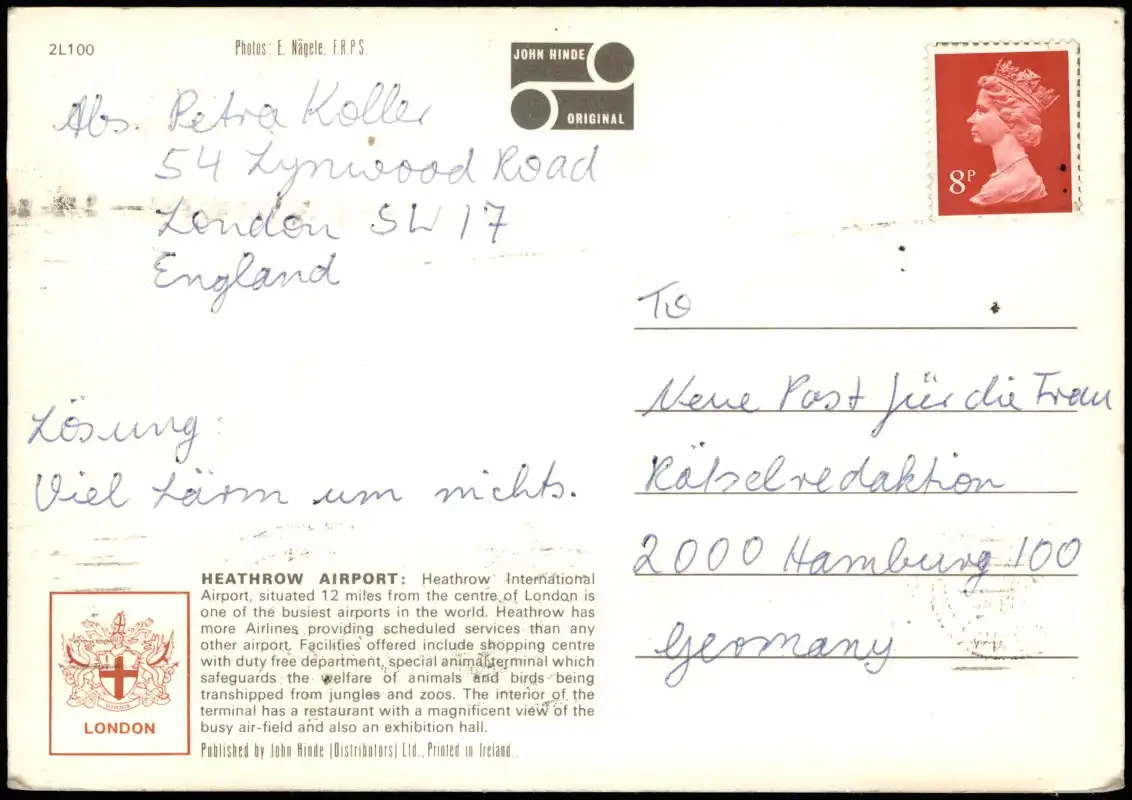 2L100
Photos: E. Nägele, F.R.P.S.
JOHN HINDE
ORIGINAL
8P
Abs. Petra Koller
54 Lynwood Road
London SW 17
England
To
Neue Post für die Frau
Rätselredaktion
2000 Hamburg 100
Germany
Lösung:
Viel Lärm um nichts.
HEATHROW AIRPORT: Heathrow International
Airport, situated 12 miles from the centre of London is
one of the busiest airports in the world. Heathrow has
more Airlines providing scheduled services than any
other airport. Facilities offered include shopping centre
with duty free department, special animal terminal which
safeguards the welfare of animals and birds being
transhipped from jungles and zoos. The interior of the
terminal has a restaurant with a magnificent view of the
busy air-field and also an exhibition hall.
Published by John Hinde (Distributors) Ltd., Printed in Ireland.
LONDON